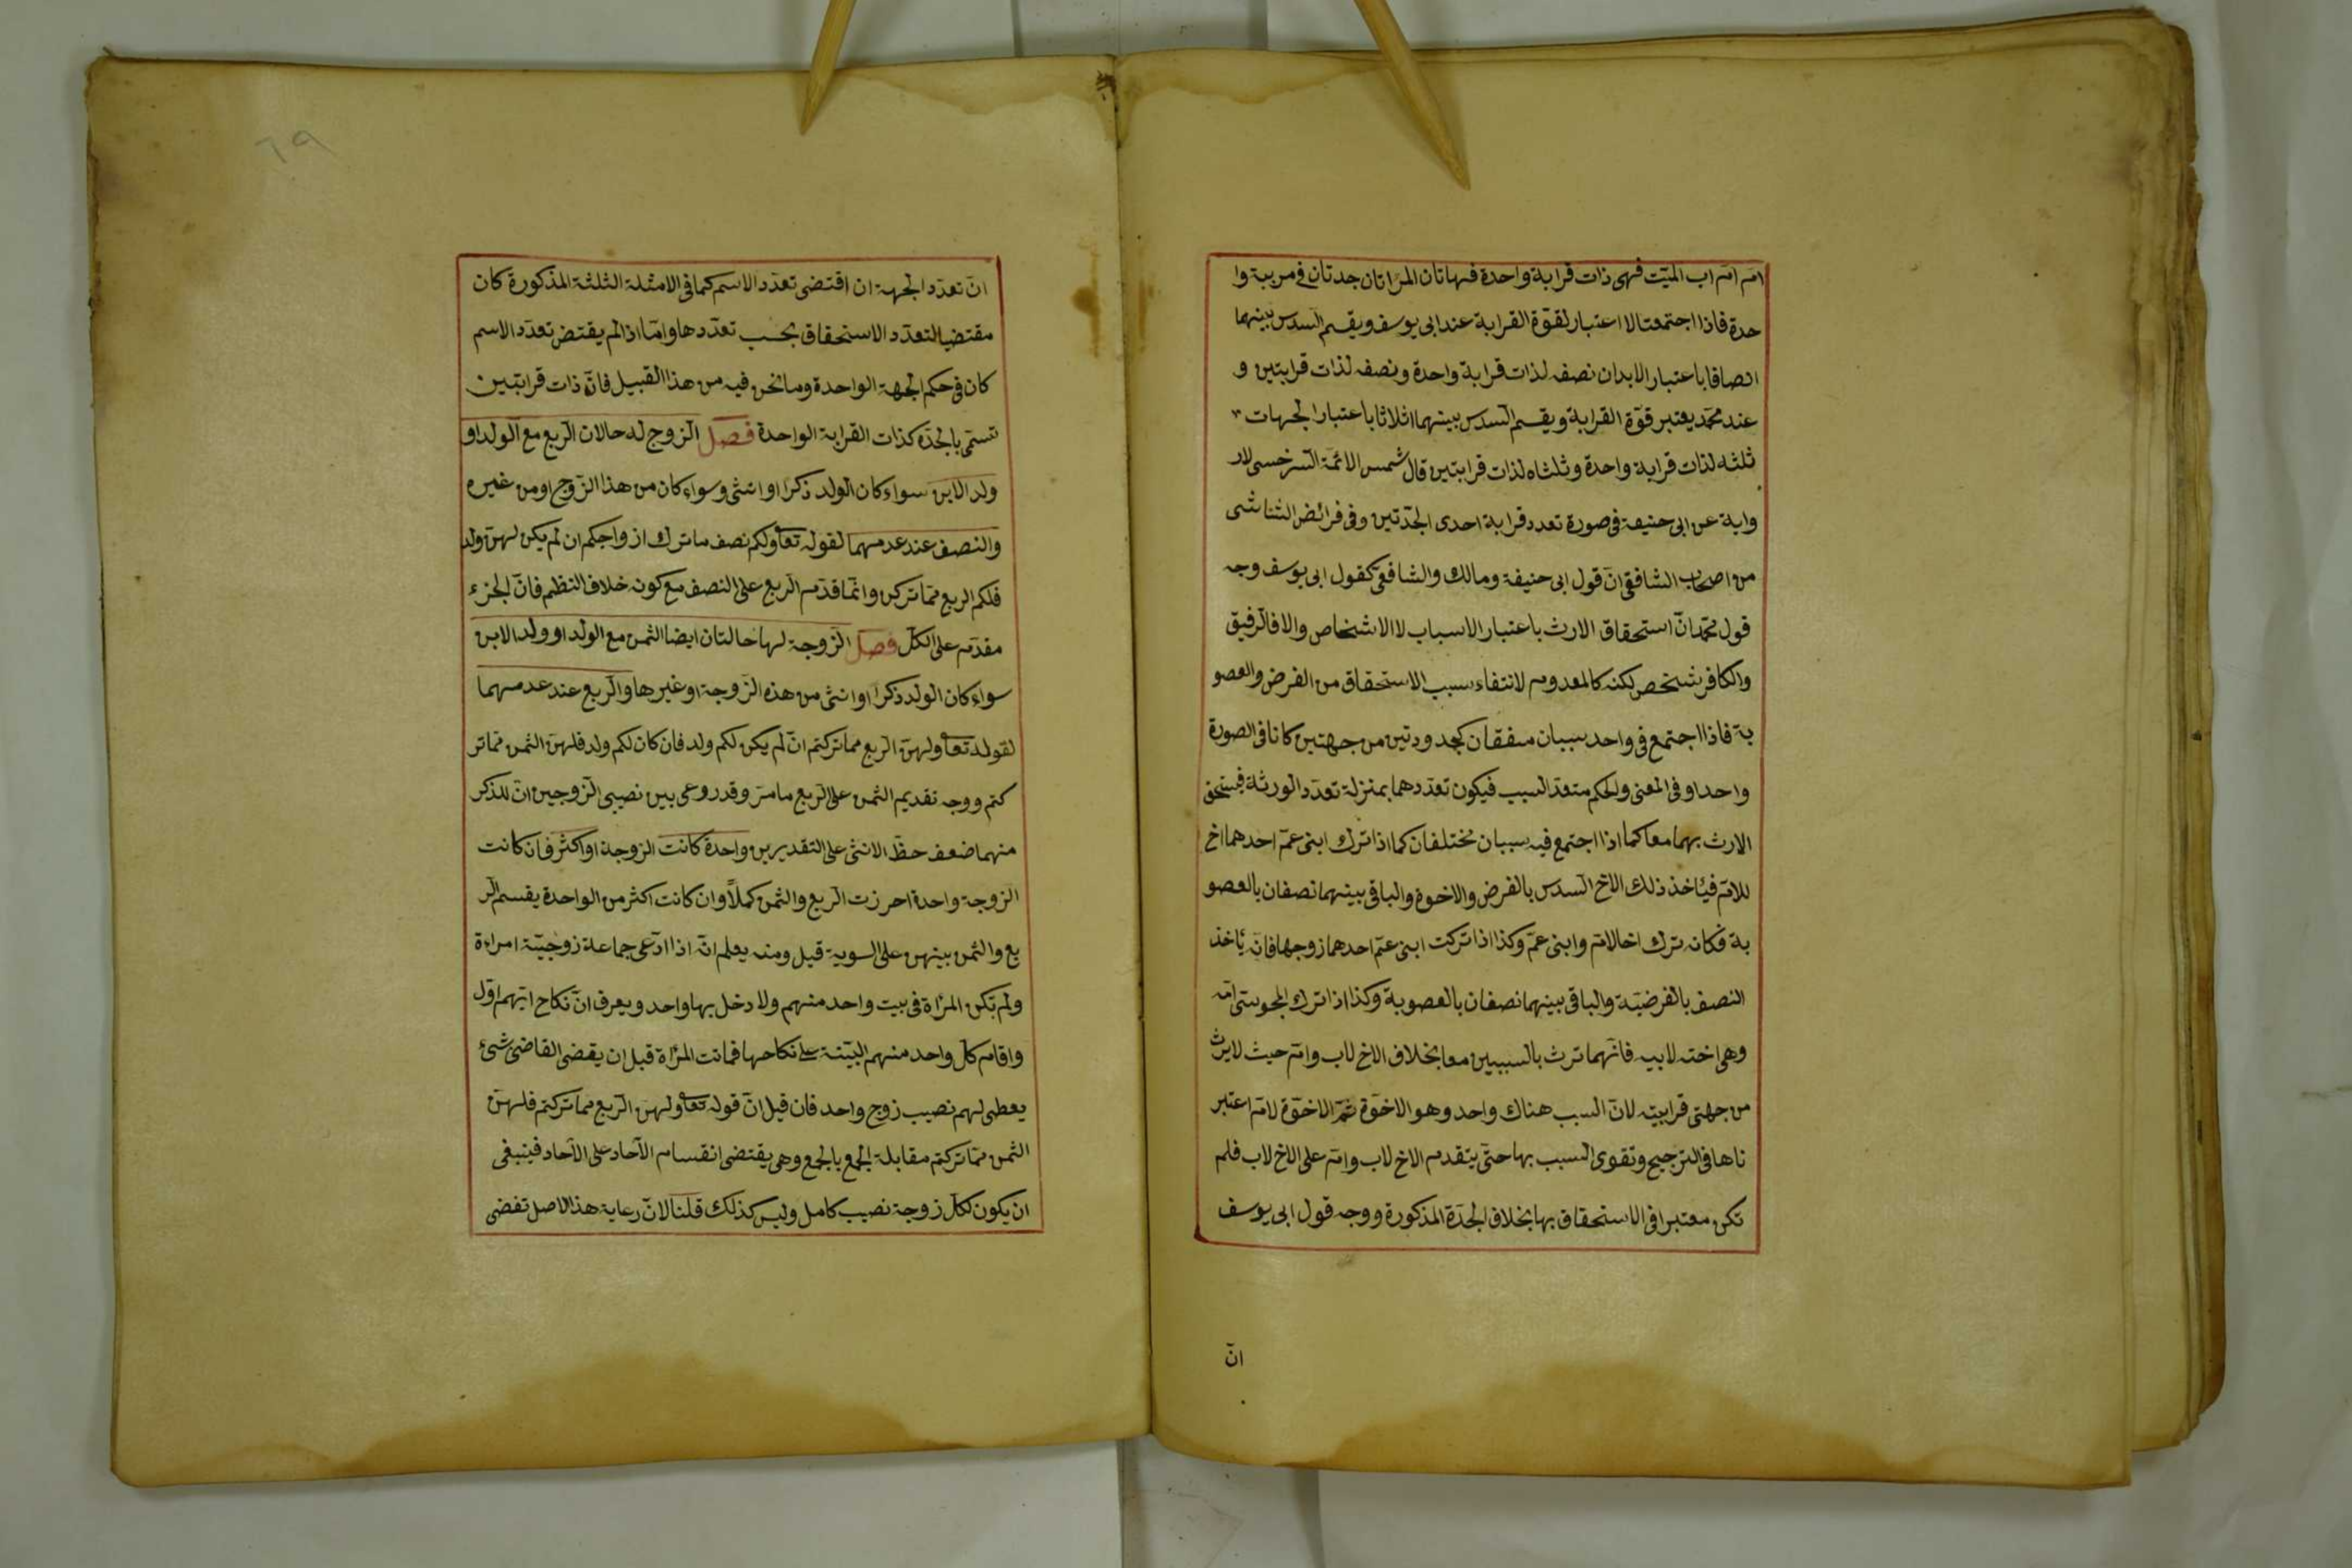 امّ امّ اب الميّت فهى ذات قرابة واحدة فهاتان المرأتان جدتان فى مرتبة وا
حدة فاذا اجتمعتا لا اعتبار لقوّة القرابة عند ابى يوسف ويقسم السدس بينهما
انصافا باعتبار الابدان نصفه لذات قرابة واحدة ونصفه لذات قرابتين و
عند محمّد يعتبر قوّة القرابة ويقسم السدس بينهما اثلاثا باعتبار الجهات
ثلثه لذات قرابة واحدة وثلثاه لذات قرابتين قال شمس الائمّة السرخسى لار
واية عن ابى حنيفة فى صورة تعدد قرابة احدى الجدّتين وفى فرائض الشناشى
من اصحاب الشافعى انّ قول ابى حنيفة ومالك والشافعى كقول ابى يوسف وجه
قول محمّد انّ استحقاق الارث باعتبار الاسباب لا الاشخاص والا فالرقيق
والكافر شخص لكنه كالمعدوم لانتفاء سبب الاستحقاق من الفرض والعصو
بة فاذا اجتمع فى واحد سببان متفقان كجدودتين من جهتين كانا فى الصورة
واحدا وفى المعنى والحكم متعدّ السبب فيكون تعدّدهما بمنزلة تعدّد الورثة فيستحق
الارث بهما معا كما اذا اجتمع فيه سببان مختلفان كما اذا ترك ابنى عمّ احدهما اخ
للامّ فيأخذ ذلك الاخ السدس بالفرض والاخوة والباقى بينهما نصفان بالعصو
بة فكانه ترك اخا لامّ وابنى عمّ وكذا اذا تركت ابنى عمّ احدهما زوجها فانّه يأخذ
النصف بالفرضيّة والباقى بينهما نصفان بالعصوبة وكذا اذا ترك المجوسىّ امّه
وهى اخته لابيه فانّهما ترث بالسببين معا بخلاف الاخ لاب وامّ حيث لا يرث
من جهتى قرابتيه لانّ السبب هناك واحد وهو الاخوّة ثمّ الاخوّة لامّ اعتبر
ناها فى الترجيح وتقوى السبب بها حتّى يتقدم الاخ لاب وامّ على الاخ لاب فلم
تكن معتبرا فى الاستحقاق بها بخلاف الجدّة المذكورة ووجه قول ابى يوسف
انّ
انّ تعدّد الجهة ان اقتضى تعدّد الاسم كما فى الامثلة الثلثة المذكورة كان
مقتضيا لتعدّد الاستحقاق بحسب تعدّدها وامّا اذا لم يقتض تعدّد الاسم
كان فى حكم الجهة الواحدة وما نحن فيه من هذا القبيل فانّ ذات قرابتين
تسمّى بالجدّة كذات القرابة الواحدة فصل الزوج له حالان الربع مع الولد او
ولد الابن سواء كان الولد ذكرا او انثى وسواء كان من هذا الزوج او من غيره
والنصف عند عدمهما لقوله تعا ولكم نصف ما ترك ازواجكم ان لم يكن لهنّ ولد
فلكم الربع ممّا تركن وانّما قدّم الربع على النصف مع كونه خلاف النظم فانّ الجزء
مقدّم على الكلّ فصل الزوجة لها حالتان ايضا الثمن مع الولد او ولد الابن
سواء كان الولد ذكرا او انثى من هذه الزوجة او غيرها والربع عند عدمهما
لقوله تعا ولهنّ الربع مما تركتم انّ لم يكن لكم ولد فان كان لكم ولد فلهنّ الثمن ممّا تر
كتم ووجه تقديم الثمن على الربع ما مرّ وقد روعى بين نصيبى الزوجين انّ للذكر
منهما ضعف حظّ الانثى على التقديرين واحدة كانت الزوجة او اكثر فان كانت
الزوجة واحدة احرزت الربع والثمن كملاً وان كانت اكثر من الواحدة يقسم الر
بع والثمن بينهن على السوية قيل ومنه يعلم انّه اذا ادّعى جماعة زوجيّة امراءة
ولم تكن المرأة فى بيت واحد منهم ولا دخل بها واحد ويعرف انّ نكاح ايّهم اوّل
واقام كلّ واحد منهم البيّنة على نكاحها فماتت المرأة قبل ان يقضى القاضى شئ
يعطى لهم نصيب زوج واحد فان قيل انّ قوله تعا ولهنّ الربع مما تركتم فلهنّ
الثمن ممّا تركتم مقابلة الجمع بالجمع وهى يقتضى انقسام الآحاد على الآحاد فينبغى
ان يكون لكلّ زوجة نصيب كامل وليس كذلك قلنا لانّ رعاية هذا الاصل تفضى
٦٩